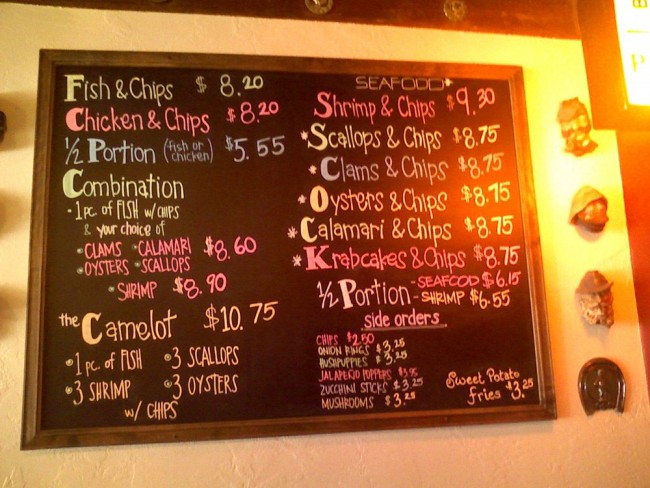 Fish & Chips $ 8.20
Chicken & Chips $8.20
1/2 Portion (fish or chicken) $5.55
Combination
•1 pc. of FISH w/ CHIPS
& your choice of
•CLAMS •CALAMARI
•OYSTERS •SCALLOPS $8.60
•SHRIMP $8.90
the Camelot $10.75
•1 pc. of FISH •3 SCALLOPS
•3 SHRIMP •3 OYSTERS
w/ CHIPS
SEAFOOD
Shrimp & Chips $9.30
*Scallops & Chips $8.75
*Clams & Chips $8.75
*Oysters & Chips $8.75
*Calamari & Chips $8.75
*Krabcakes & Chips $8.75
1/2 Portion - SEAFOOD $6.15
- SHRIMP $6.55
side orders
CHIPS $2.50
ONION RINGS $3.25
HUSHPUPPIES $3.25
JALAPEÑO POPPERS $3.95
ZUCCHINI STICKS $3.25
MUSHROOMS $3.25
Sweet Potato
fries $3.25